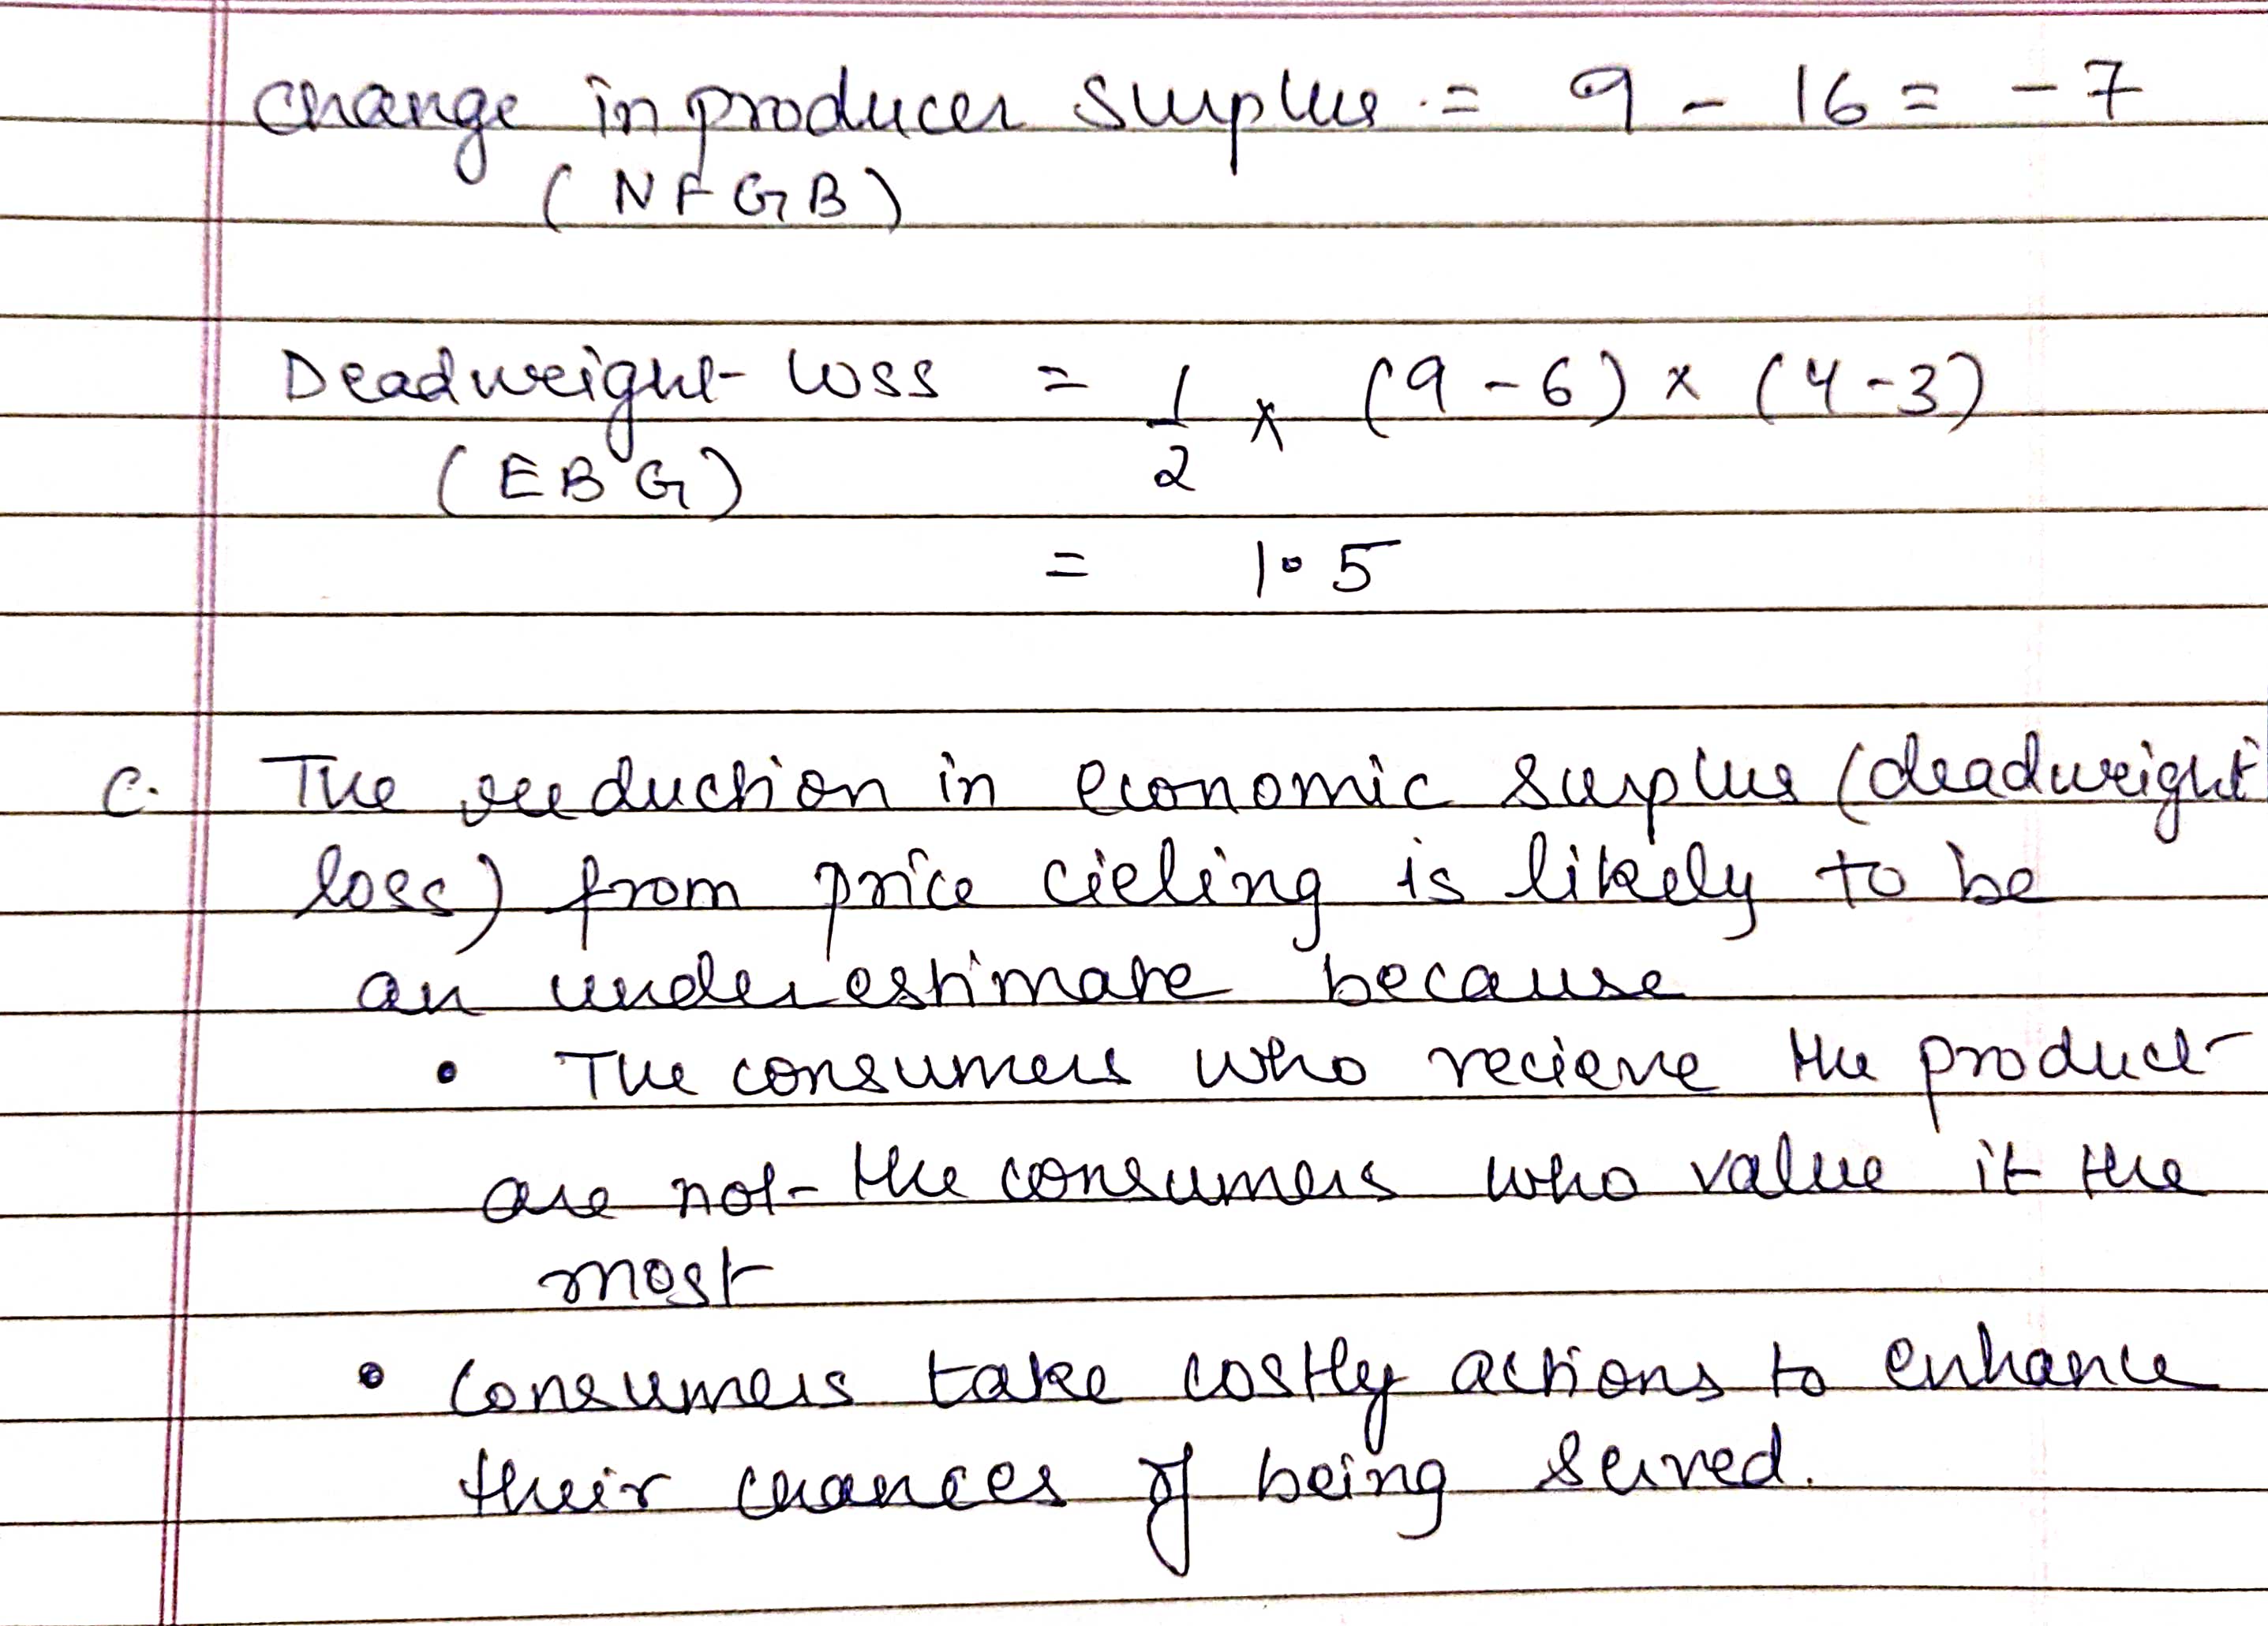 Change in producer surplus = 9 - 16 = -7
(NFGB)
Deadweight loss = 1/2 x (9-6) x (4-3)
(EBG)
= 1.5
c. The reduction in economic surplus (deadweight
loss) from price cieling is likely to be
an underestimate because
• The consumers who recieve the product
are not the consumers who value it the
most
• Consumers take costly actions to enhance
their chances of being served.